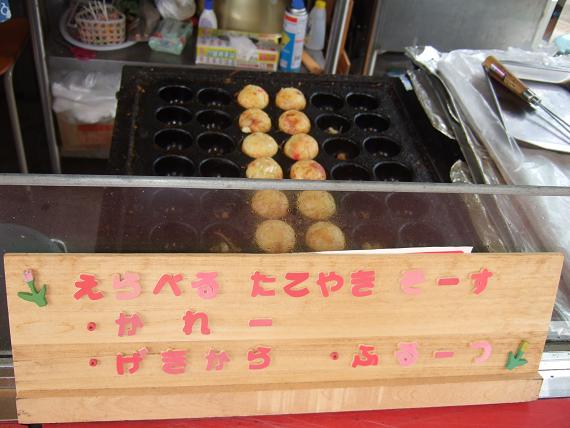 えらべる たてやき そーす
・かれー
・げきから ・ふるーつ